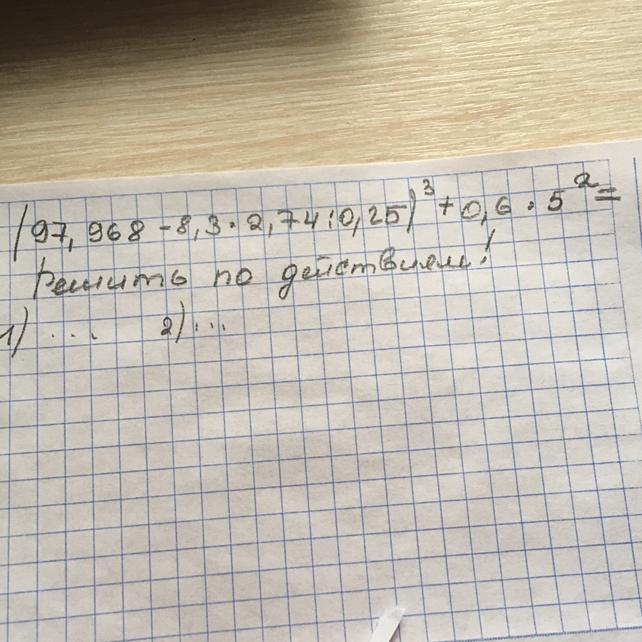 (97,968 - 8,3 · 2,74 : 0,25)³ + 0,6 · 5² =
Решить по действиям!
1) ... 2) ...